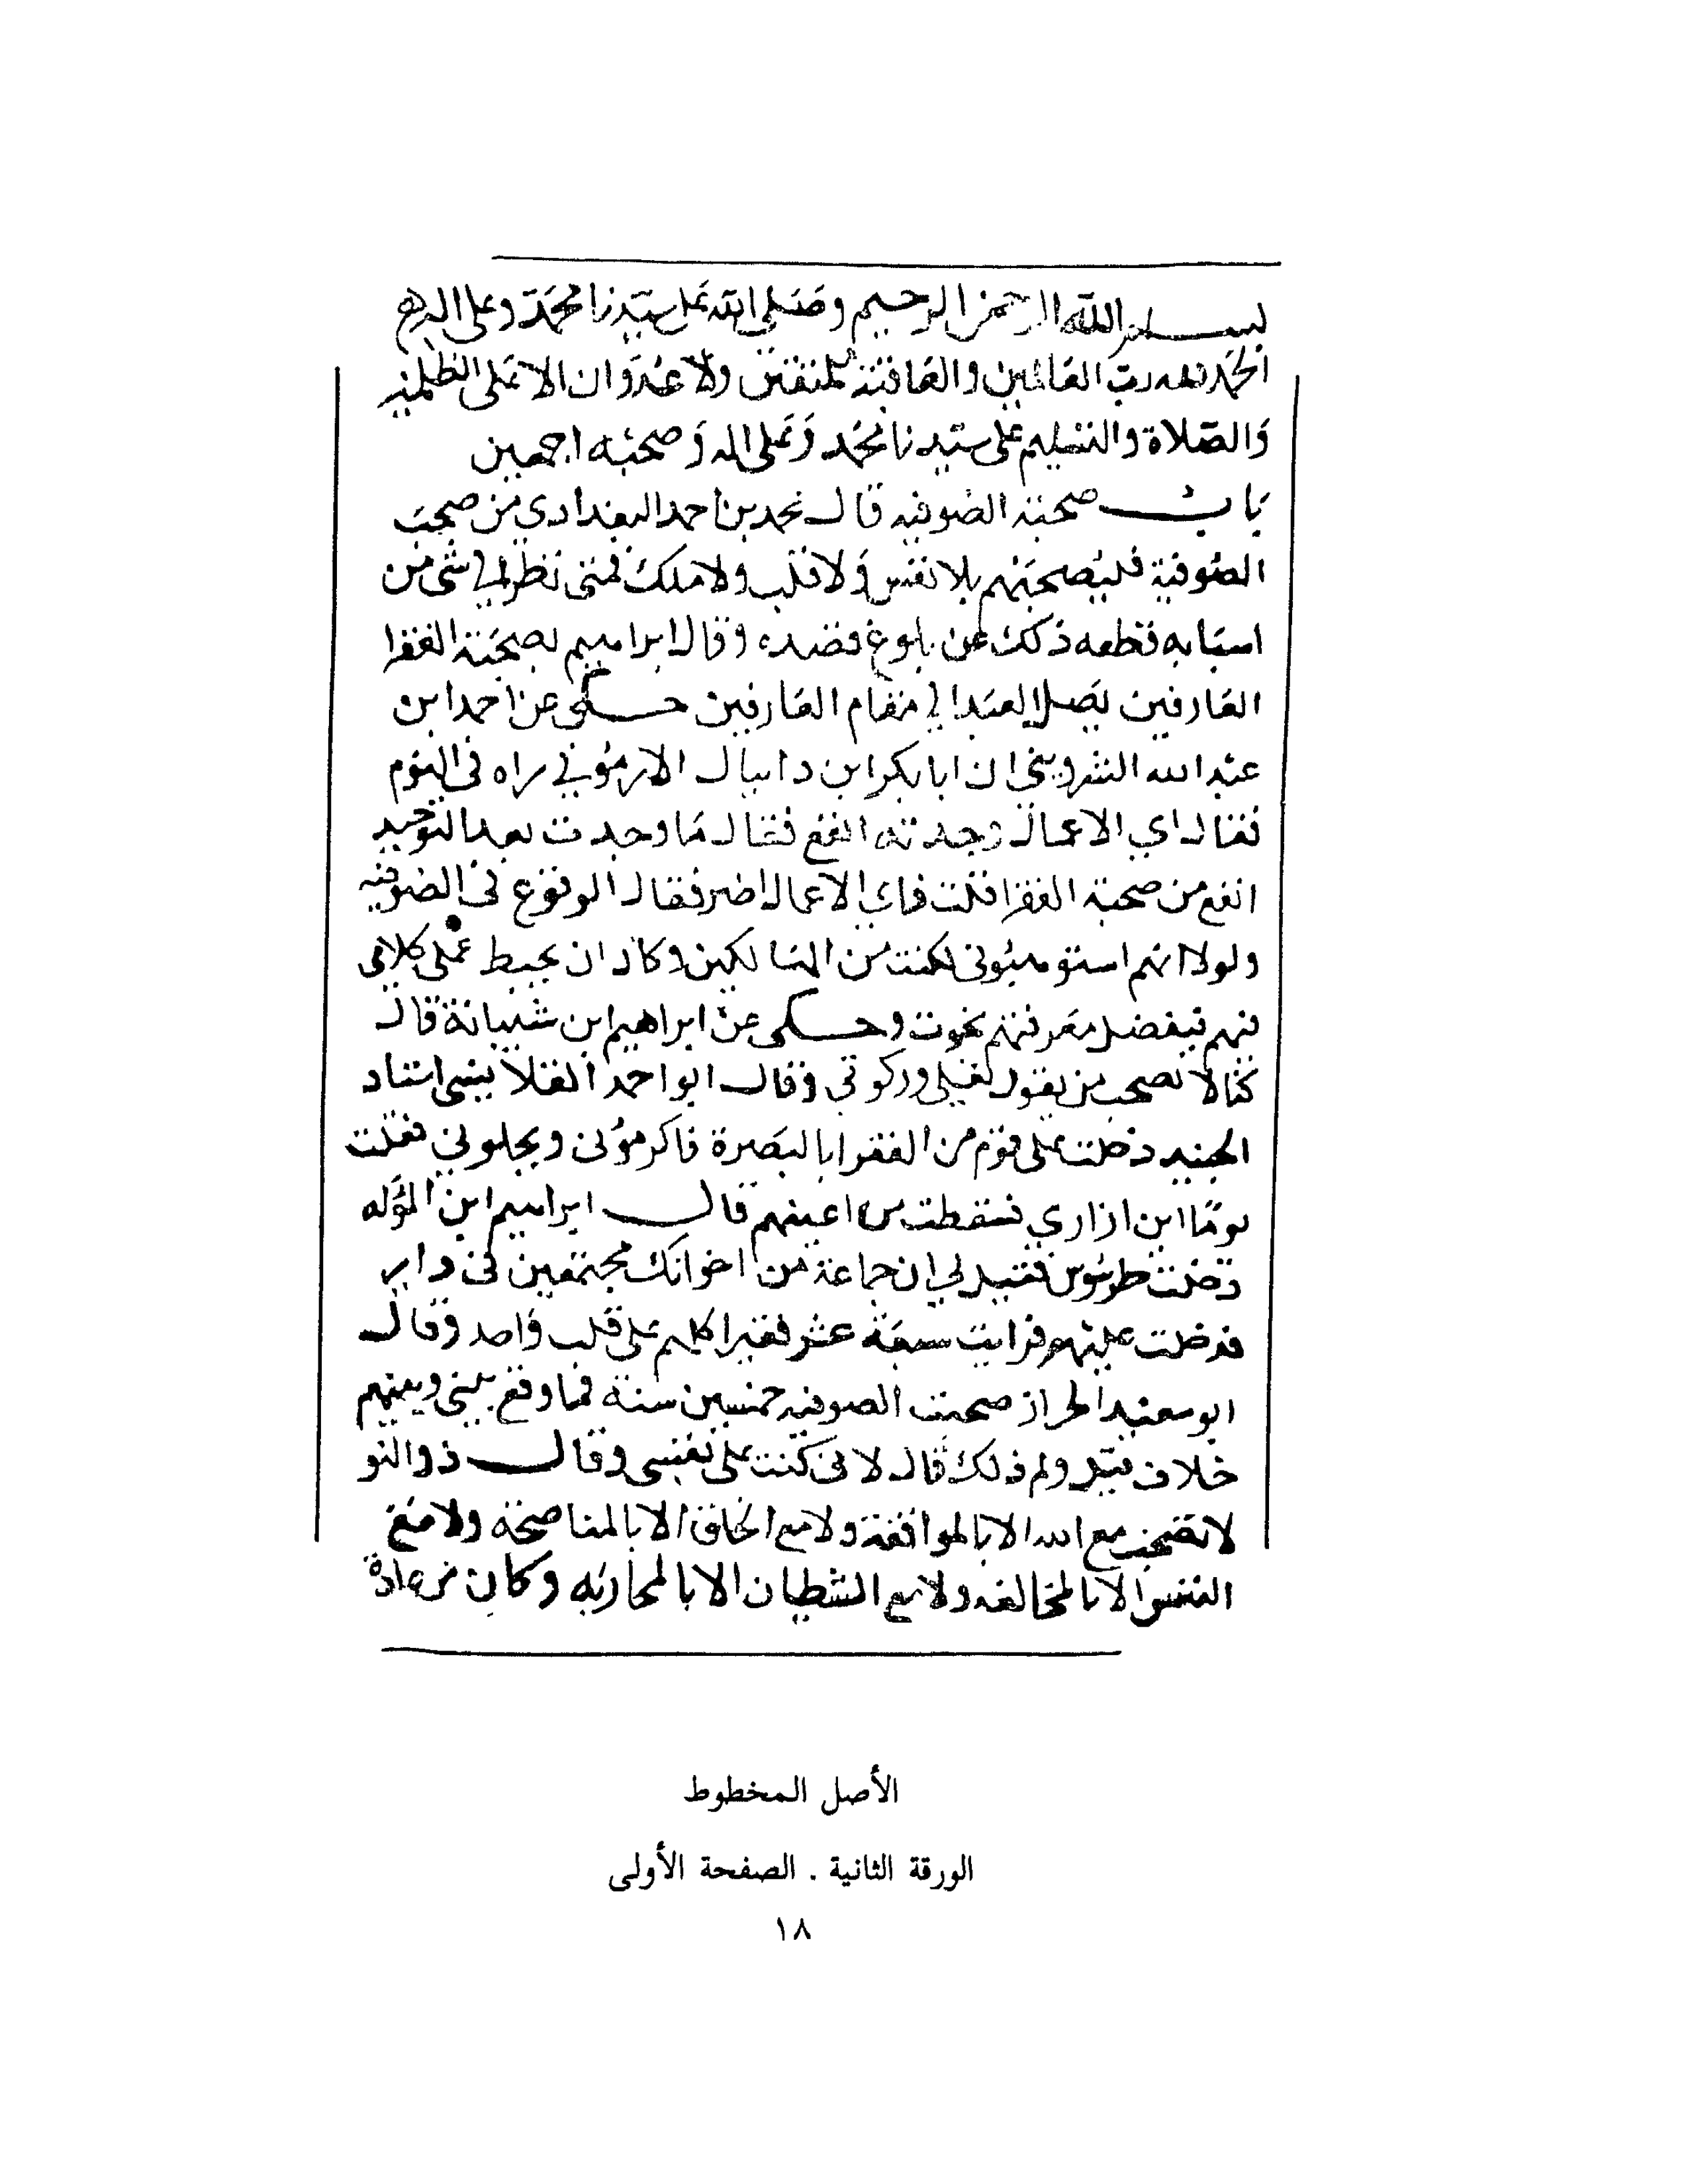 بسم الله الرحمن الرحيم وصلى الله على سيدنا محمد وعلى اله
الحمد لله رب العالمين والعاقبة للمتقين ولا عدوان الا على الظلمين
والصلاة والتسليم على سيدنا محمد وعلى اله وصحبه اجمعين
باب صحبة الصوفيه قال محمد بن احمد البغدادي من صحب
الصوفية فليصحبهم بلا نفس ولا قلب ولا ملك فمتى نظر الى شى من
اسبابه قطعه ذلك عن بلوغ قصده وقال ابراهيم بصحبة الفقرا
العارفين يصل العبد الي مقام العارفين حكى عن احمد ابن
عبد الله الشرويني ان ابا بكر ابن دانيال الارموني راه في النوم
فقال اي الاعمال وجدته انفع فقال ما وجدت بعد التوحيد
انفع من صحبة الفقرا قلت فاي الاعمال اضر فقال الوقوع فى الصوفيه
ولولا انهم استوهبونى لكنت من الهالكين وكاد ان يحبط عملى كلامى
فيهم فبفضل معرفتهم نجوت وحكى عن ابراهيم ابن شيبانة قال
كنا لا نصحب من يقول نعلي وركوتي وقال ابو احمد القلانسى استاد
الجنيد دخلت على قوم من الفقرا بالبصرة فاكرموني وبجلوني فقلت
يوما اين ازاري فسقطت من اعينهم قال ابراهيم ابن المؤله
دخلت طرسوس فقيل لي ان جماعة من اخوانك مجتمعين فى دار
فدخلت عليهم فرايت سبعة عشر فقيرا كلهم على قلب واحد وقال
ابو سعيد الخراز صحبت الصوفيه خمسين سنة فما وقع بينى وبينهم
خلاف قيل ولم ذلك قال لانى كنت على نفسى وقال ذو النو
لا تصحب مع الله الا بالموافقة ولا مع الخلق الا بالمناصحة ولا مع
النفس الا بالمخالفه ولا مع الشيطان الا بالمحاربه وكان من عادة
الأصل المخطوط
الورقة الثانية . الصفحة الأولى
١٨